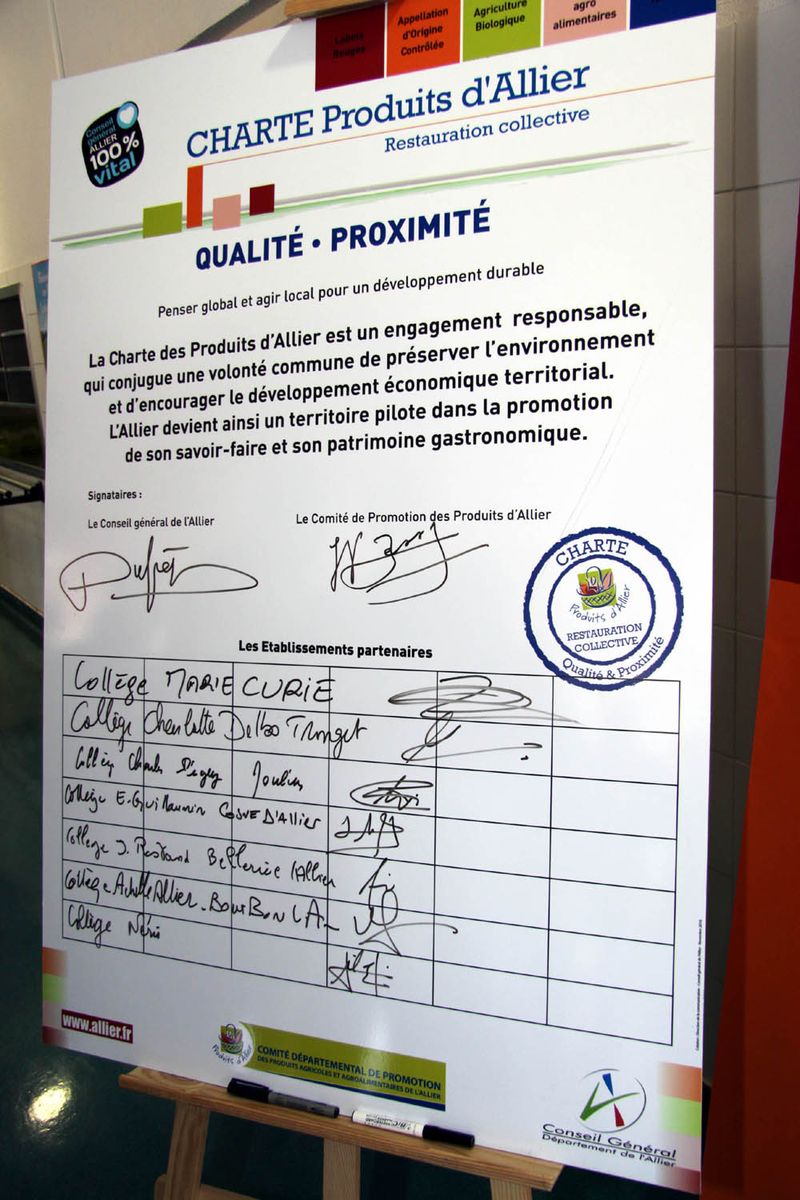 Labels
Rouges
Appellation
d'Origine
Contrôlée
Agriculture
Biologique
agro
alimentaires
Conseil
général
ALLIER
100%
vital
CHARTE Produits d'Allier
Restauration collective
QUALITÉ • PROXIMITÉ
Penser global et agir local pour un développement durable
La Charte des Produits d'Allier est un engagement responsable,
qui conjugue une volonté commune de préserver l'environnement
et d'encourager le développement économique territorial.
L'Allier devient ainsi un territoire pilote dans la promotion
de son savoir-faire et son patrimoine gastronomique.
Signataires :
Le Conseil général de l'Allier
Le Comité de Promotion des Produits d'Allier
CHARTE
Produits d'Allier
RESTAURATION
COLLECTIVE
Qualité & Proximité
Les Etablissements partenaires
Collège MARIE CURIE
Collège Charlotte Delbo Tronget
Collège Charles Péguy Moulins
Collège E. Guillaumin COSNE D'ALLIER
Collège J. Rostand Bellerive s/Allier
Collège Achille Allier - BOURBON L'A
Collège Néris
www.allier.fr
Produits d'Allier
COMITÉ DÉPARTEMENTAL DE PROMOTION
DES PRODUITS AGRICOLES ET AGROALIMENTAIRES DE L'ALLIER
Conseil Général
Département de l'Allier